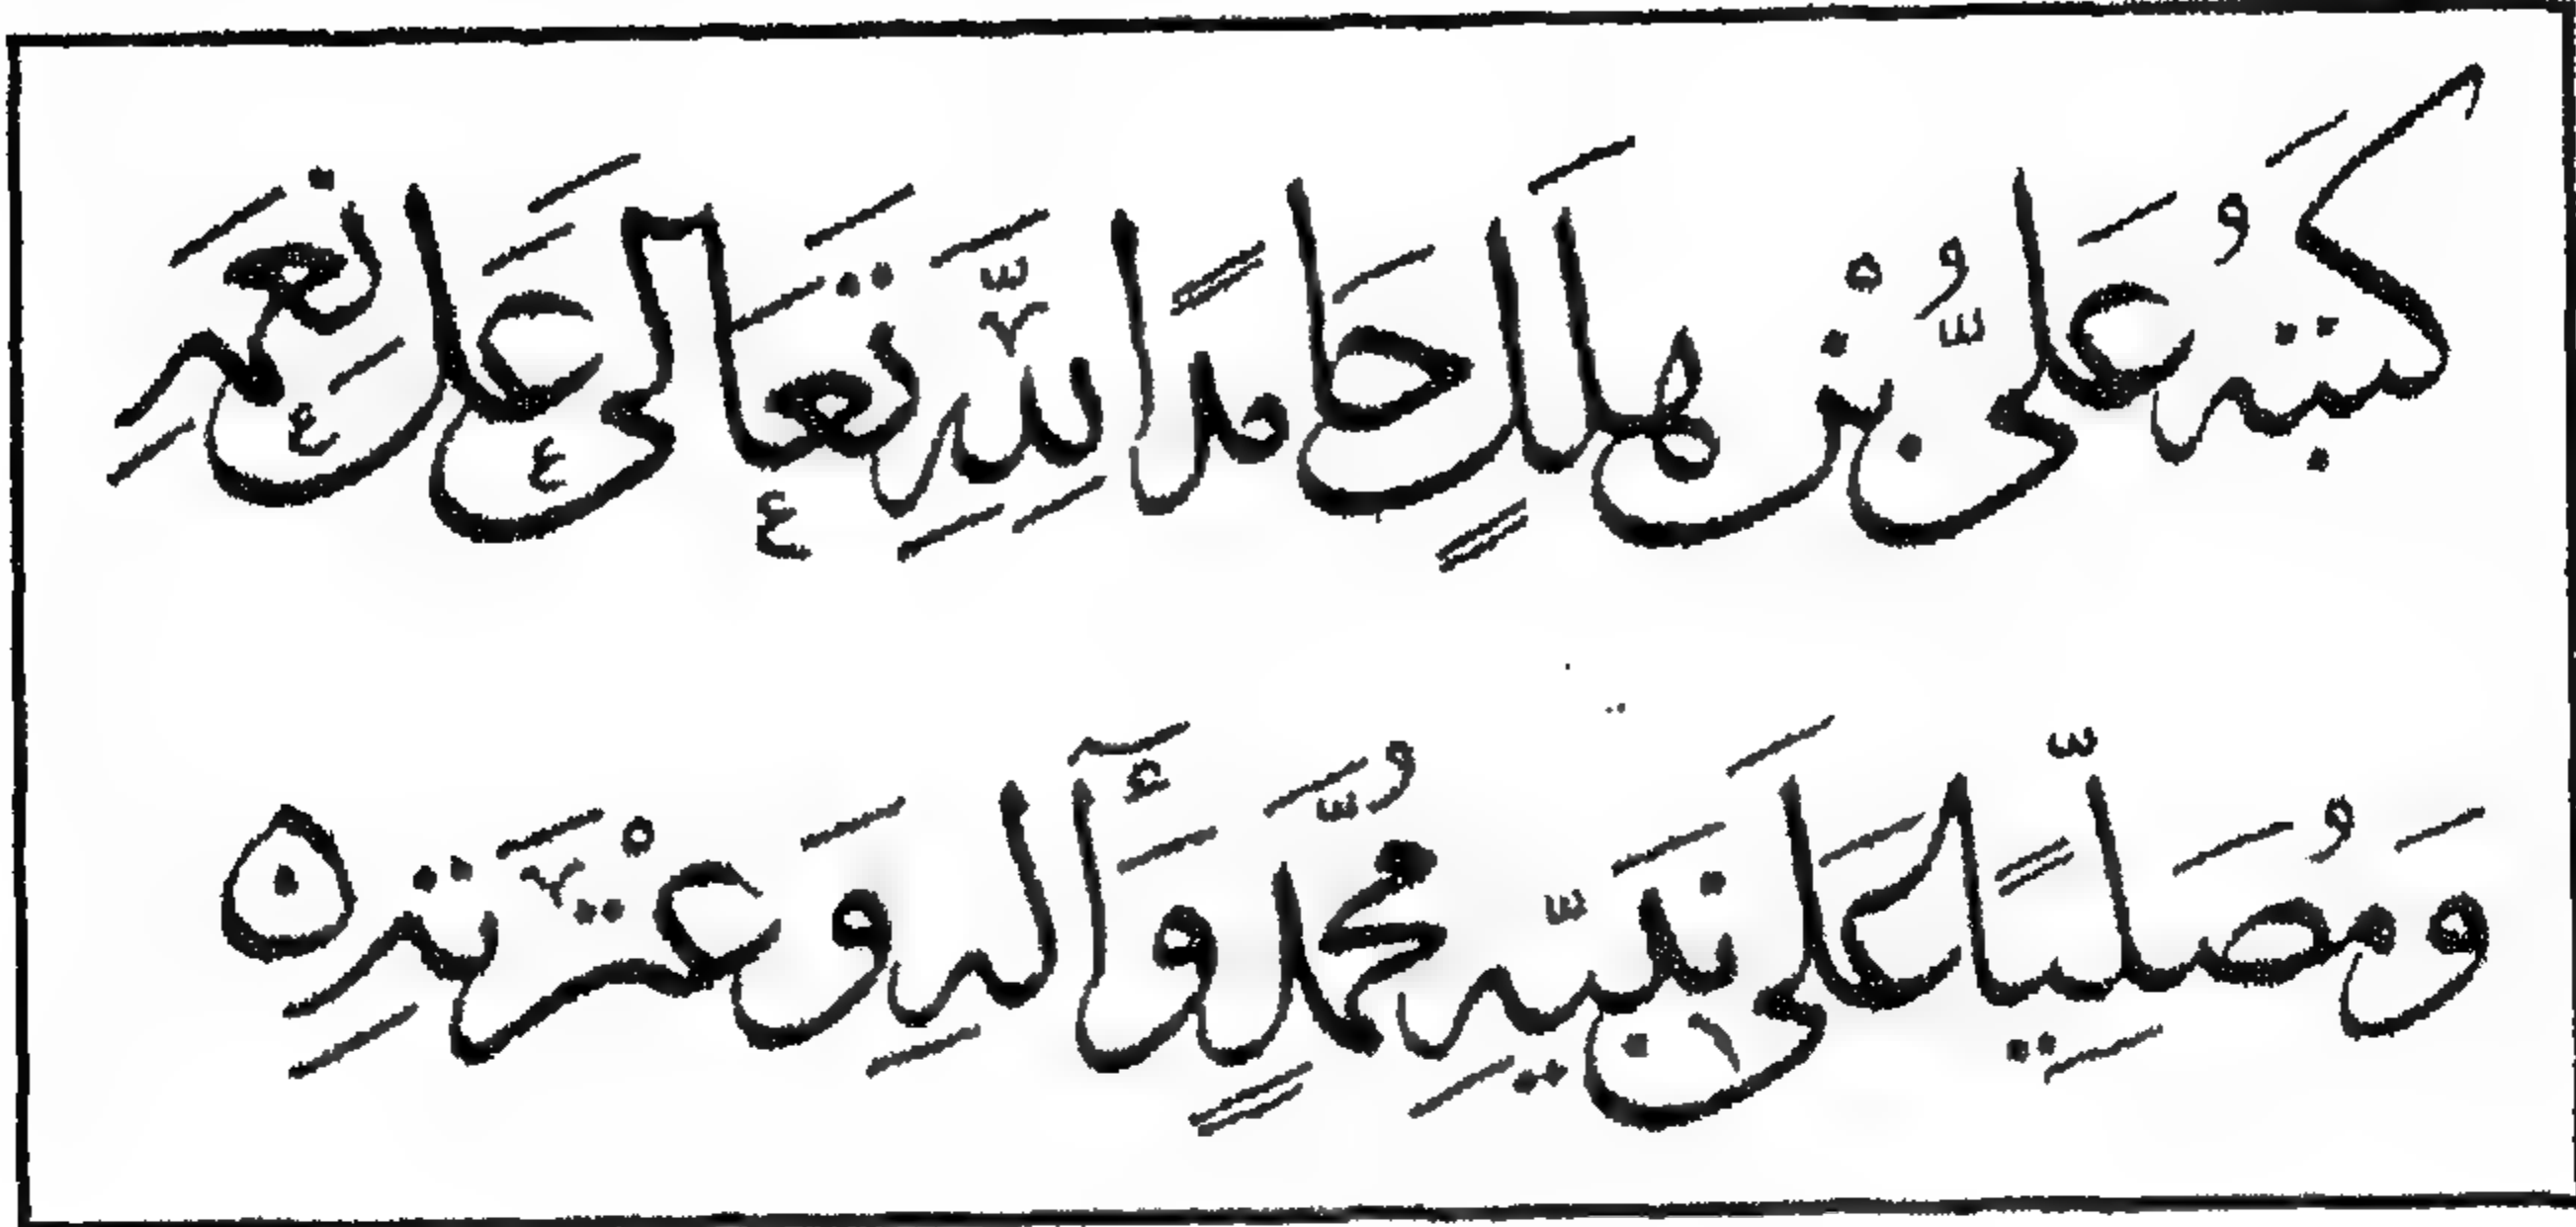 كَتَبَهُ عَلِيُّ بْنُ هِلَالٍ حَامِدًا لِلَّهِ تَعَالَى عَلَى نِعَمِهِ
وَمُصَلِّيًا عَلَى نَبِيِّهِ مُحَمَّدٍ وَآلِهِ وَعِتْرَتِهِ